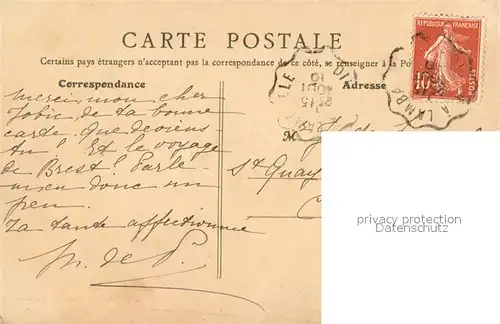 CARTE POSTALE
Certains pays étrangers n'acceptant pas la correspondance de ce côté, se renseigner à la Po
Correspondance
Adresse
REPUBLIQUE FRANÇAISE
POSTES
10
A LAMBA
Merci, mon cher
de ta bonne
carte. Que deviens
tu! Et le voyage
de Brest? Parle
m'en donc un
peu.
Ta tante affectionnée
M. de P.
St Quay
privacy protection
Datenschutz